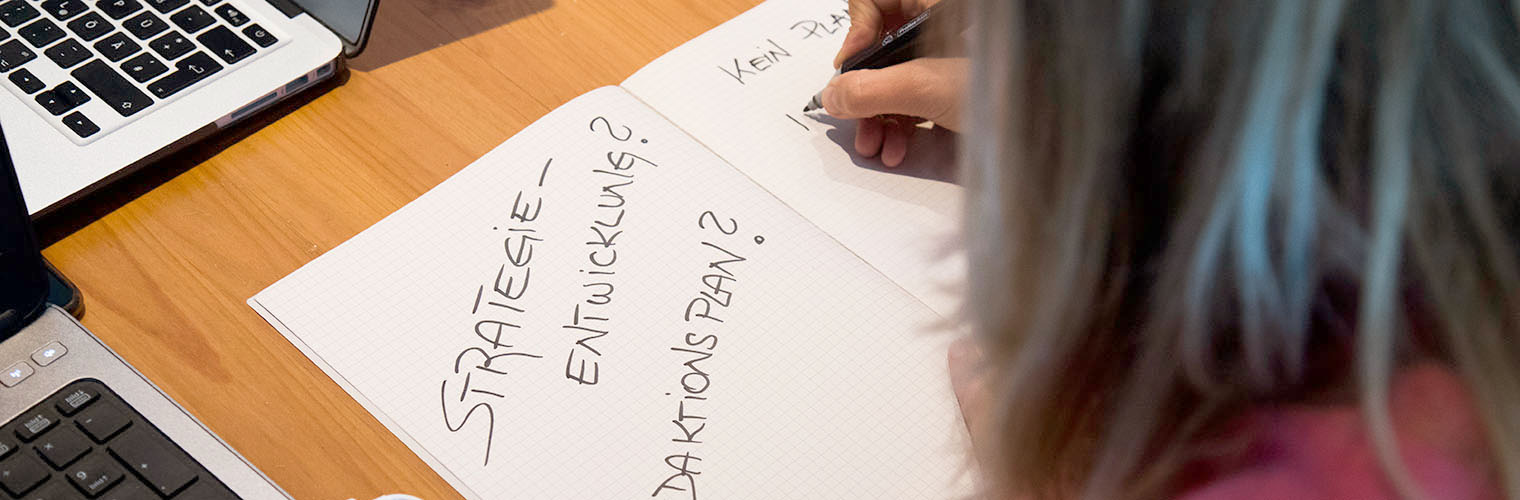 STRATEGIE-
ENTWICKLUNG?
DAKTIONSPLAN?
KEIN PLAN